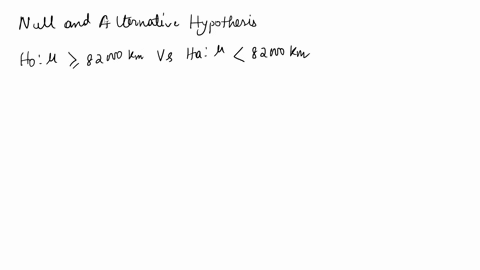 Null and Alternative Hypothesis
Ho: μ ≥ 82000 km Vs Ha: μ < 82000 km